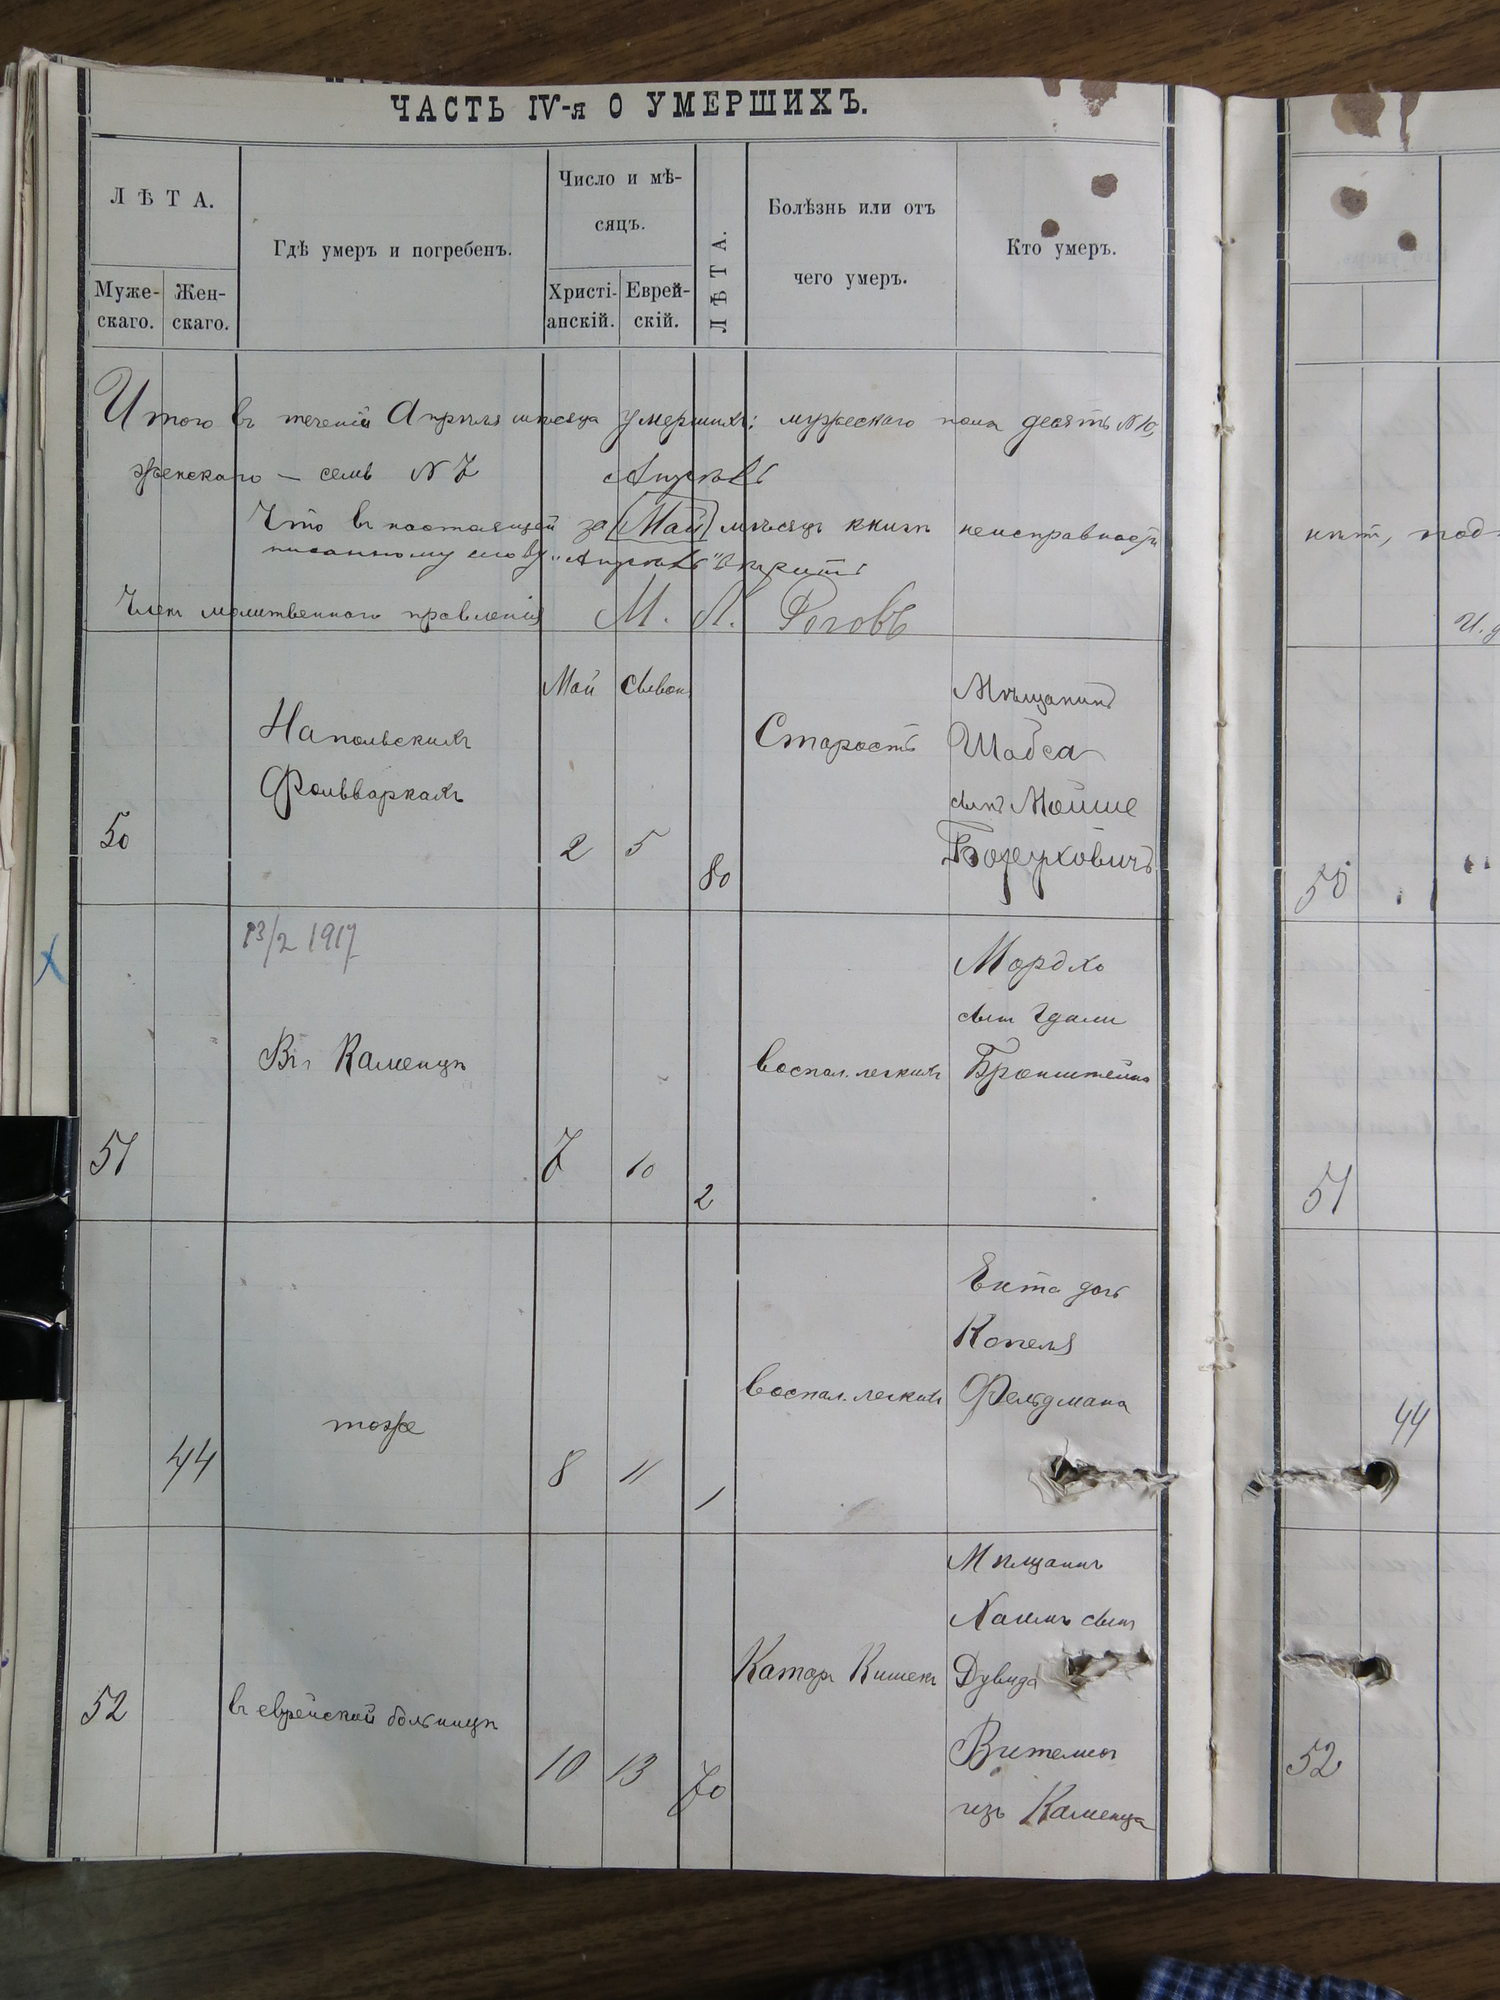 ЧАСТЬ IV-я О УМЕРШИХЪ.
ЛѢТА.
Муже-
скаго.
Жен-
скаго.
Гдѣ умеръ и погребенъ.
Число и мѣ-
сяцъ.
Христі-
анскій.
Еврей-
скій.
ЛѢТА.
Болѣзнь или отъ
чего умеръ.
Кто умеръ.
Итого въ теченіи Апрѣля мѣсяца умершихъ: мужескаго пола десять N 10,
женскаго — семь N 7
Апрѣль
Что въ настоящей за (Май) мѣсяцъ книгѣ неисправности
писанному слову „Апрѣль"
Членъ молитвеннаго правленія М. Л. Роговъ
50
Напольскихъ
Фольваркахъ
Май
2
Сывон
5
80
Старость
Мѣщанинъ
Шабса
сынъ Мойше
Борухович
51
13/2 1917
Въ г Каменцѣ
7
10
2
воспал. легкихъ
Мордхо
сын Гдали
Бронштейнъ
44
тоже
8
11
1
воспал. легких
Ента дочь
Копеля
Фельдмана
52
въ еврейской больницѣ
10
13
70
Катар Кишекъ
Мѣщанинъ
Хаимъ сынъ
Дувида
изъ Каменца
50
51
44
52